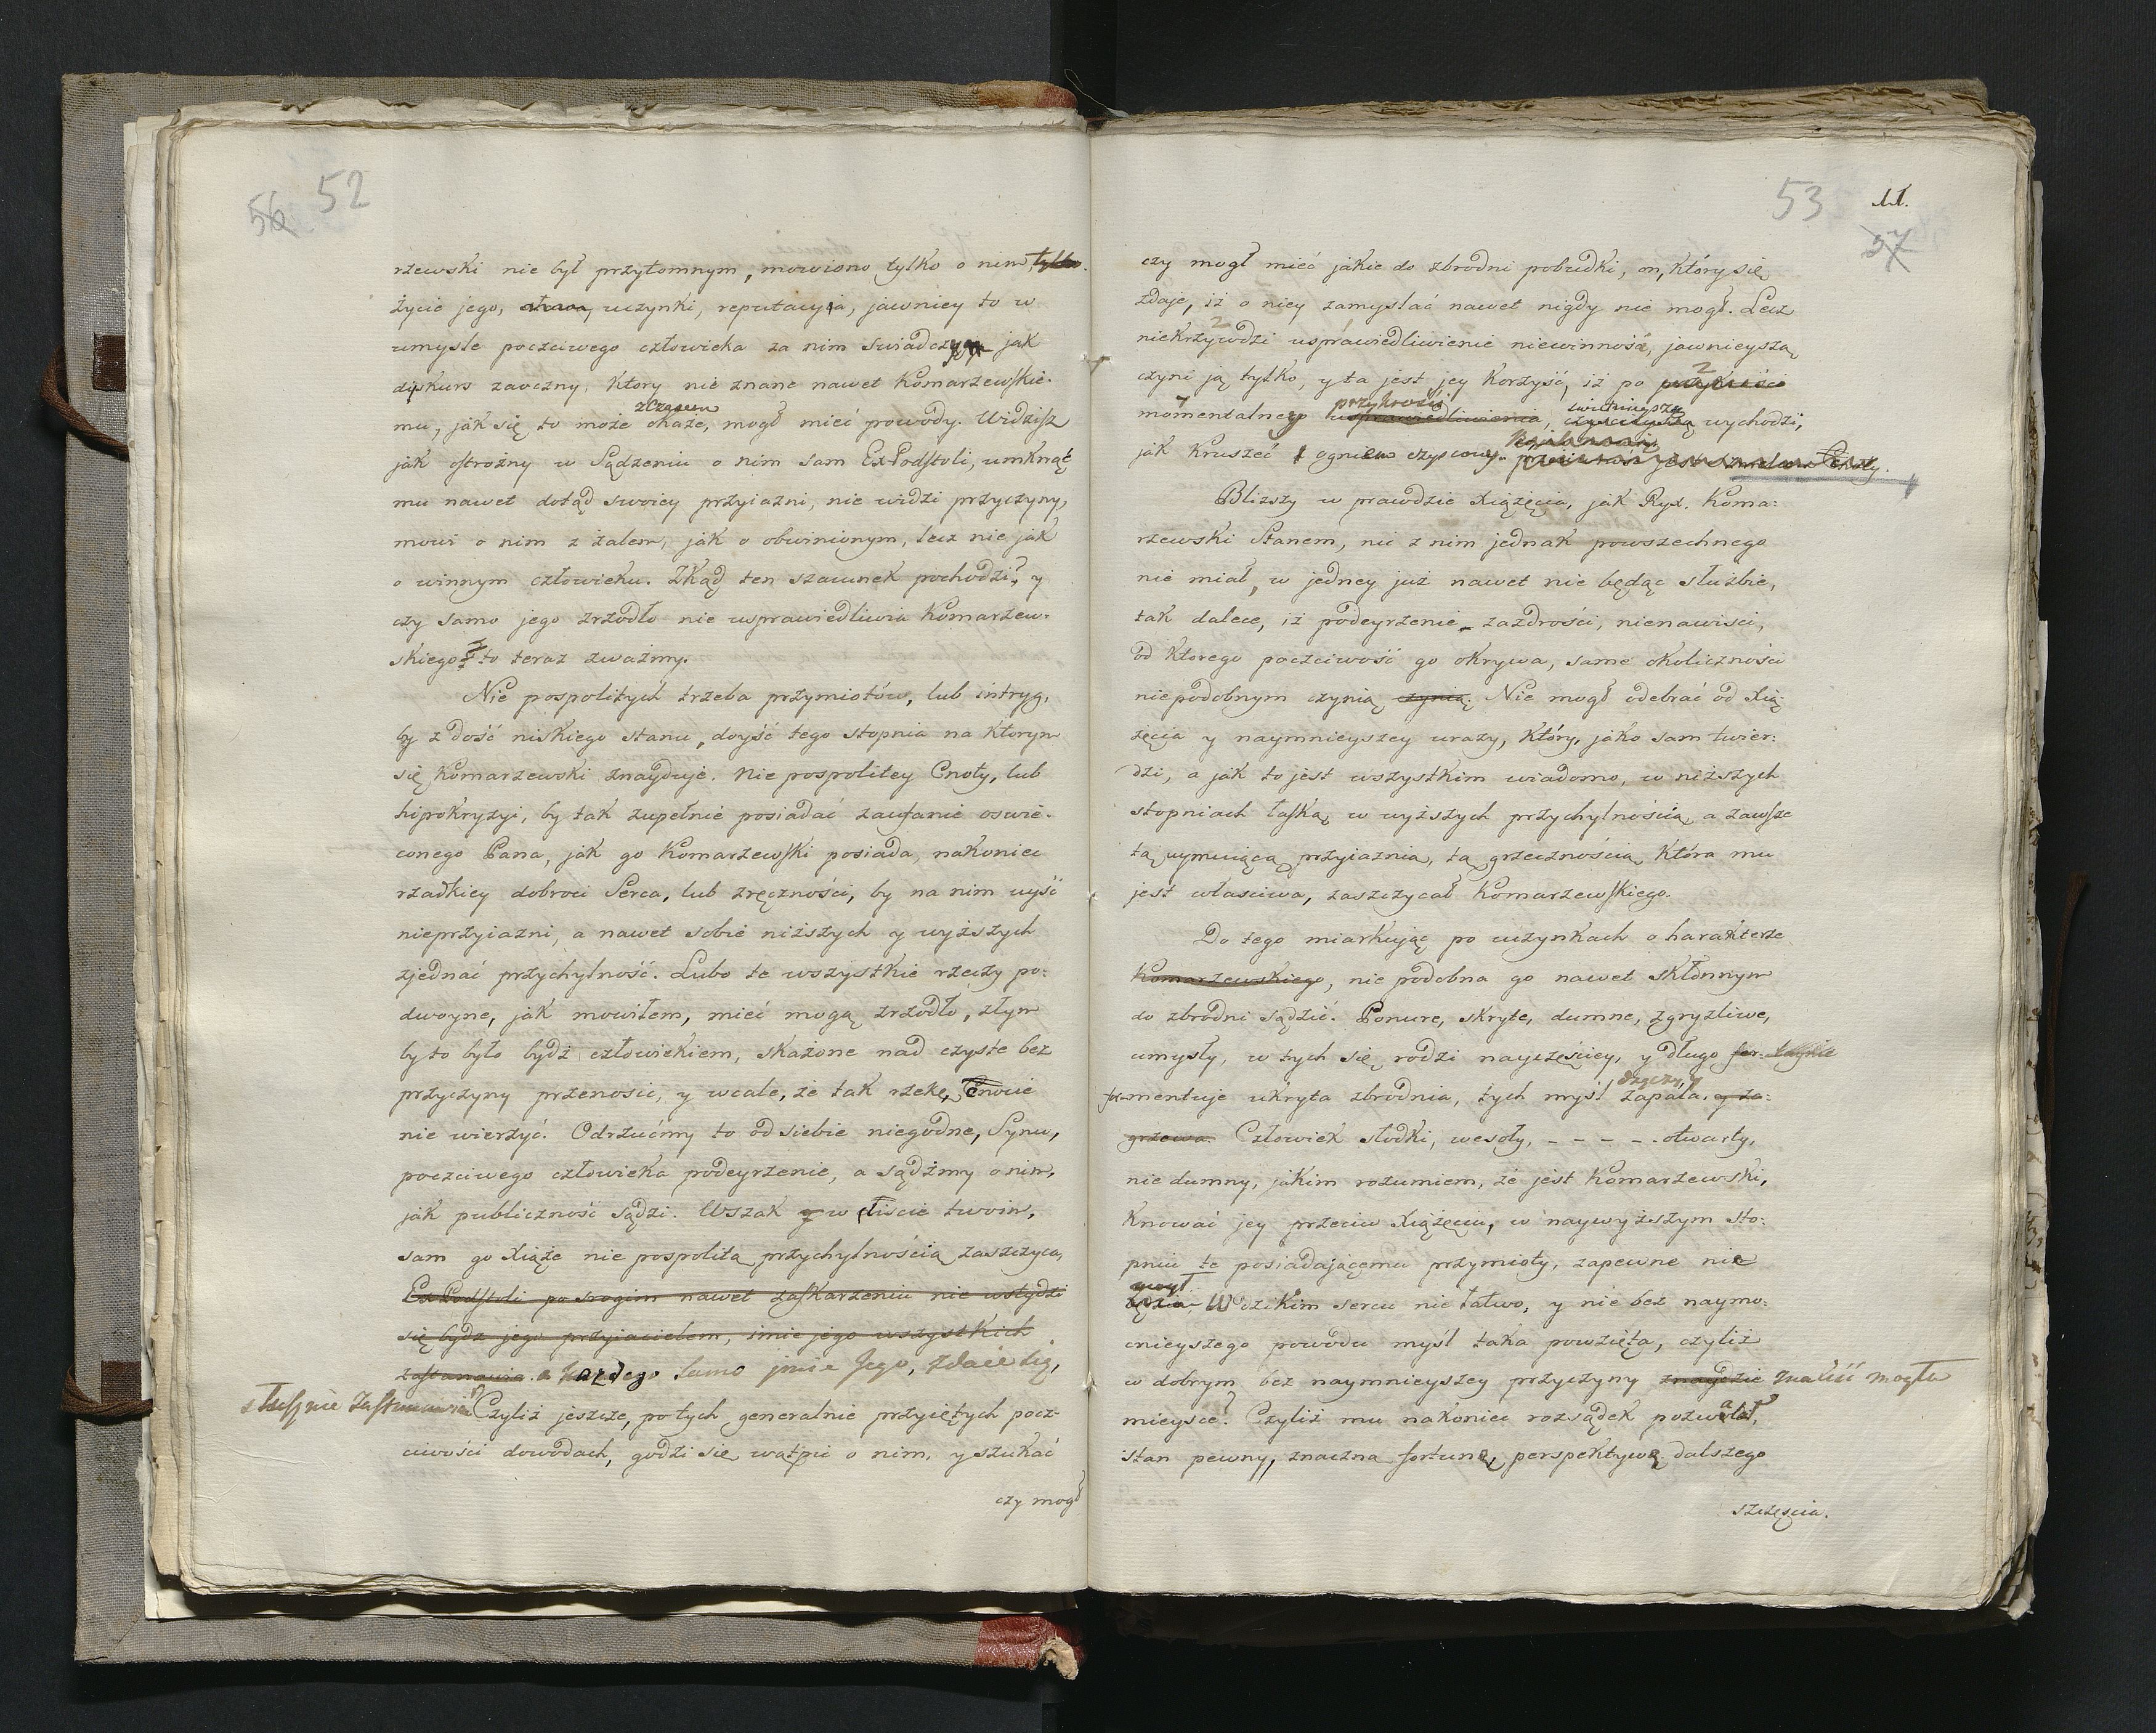 56 52
rzewski nie był przytomnym, mowiono tylko o nim, tylko.
życie jego, słowa, uczynki, reputacyia, jawniey to w
umysle poczciwego człowieka za nim swiadczy jak
dyskurs zaoczny, Ktory nie znane nawet Komarzewskie-
zczasem
mu, jak się to może okaże, mogł mieć powody. Widzisz
jak ostrożny w Sądzeniu o nim sam Ex Podstoli, umknąć
mu nawet dotąd swoiey przyiazni, nie widzi przyczyny,
mowi o nim z żalem, jak o obwinionym, lecz nie jak
o winnym człowieku. Zkąd ten szacunek pochodzi, y
czy samo jego zrzodło nie usprawiedliwia Komarzew-
skiego? to teraz zważmy.
Nie pospolitych trzeba przymiotów, lub intryg,
by z dość niskiego stanu, doyść tego stopnia na Ktorym
się Komarzewski znayduje. Nie pospolitey Cnoty, lub
hipokryzyi, by tak zupełnie posiadać zaufanie oswie-
conego Pana, jak go Komarzewski posiada, nakoniec
rzadkiey dobroci Serca, lub zręczności, by na nim uyść
nieprzyiazni, a nawet sobie niższych y wyższych
zjednać przychylność. Lubo te wszystkie rzeczy po-
dwoyne, jak mowiłem, mieć mogą zrzodło, złym
by to było bydź człowiekiem, skażone nad czyste bez
przyczyny przenosic, y wcale, że tak rzekę, Cnocie
nie wierzyć. Odrzućmy to od siebie niegodne, Synu,
poczciwego człowieka podeyrzenie, a sądźmy o nim,
jak publiczność sądzi. Wszak y w liscie twoim,
sam go Xiąże nie pospolitą przychylnością zaszczyca,
Ex Podstoli po srogim nawet zaskarzeniu nie wstydzi
się bydz jego przyiacielem, imie jego wszystkich
zastanawia. a każdego samo jmie Jego, zdaie się,
słusznie zastanawia? Czyliż jeszcze, po tych generalnie przyiętych pocz-
ciwości dowodach, godzi się wątpic o nim, y szukać
czy mogł
53 11.
57
czy mogł mieć jakie do zbrodni pobudki, on, który się
zdaje, iż o niey zamyslać nawet nigdy nie mogł. Lecz
niekrzywdzi usprawiedliwienie niewinność, jawnieyszą
czyni ją tylko, y ta jest jey Korzyść, iż po przykrości
przykrości świetnieyszą
momentalney usprawiedliwienia, czyscieyszą wychodzi,
jak Kruszec ogniem czyscony.
Blizszy w prawdzie Xiążęcia, jak Ryx. Koma-
rzewski Stanem, nic z nim jednak powszechnego
nie miał, w jedney już nawet nie będąc służbie,
tak dalece, iż podeyrzenie zazdrości, nienawisci,
od Ktorego poczciwość go okrywa, same okoliczności
niepodobnym czynią czynią. Nie mogł odebrać od Xią-
żęcia y naymnieyszey urazy, Który, jako sam twier-
dzi, a jak to jest wszystkim wiadomo, w niższych
stopniach łaską, w wyższych przychylnością, a zawsze
tą uymuiącą przyiaznią, tą grzecznością, Która mu
jest własciwa, zaszczycał Komarzewskiego.
Do tego miarkując po uczynkach o harakterze
Komarzewskiego, nie podobna go nawet skłonnym
do zbrodni sądzić. Ponure, skryte, dumne, zgryzliwe,
umysły, w tych się rodzi nayczęściey, y długo fer- taynie
fermentuje ukryta zbrodnia, tych mysl zapala, y za-
grzewa. Człowiek słodki, wesoły, - - - - otwarty,
nie dumny, jakim rozumiem, że jest Komarzewski,
Knować jey przeciw Xiążęciu, w naywyższym sto-
pniu te posiadającemu przymioty, zapewne nie
mogł
będzie. W dzikim sercu nie łatwo, y nie bez naymo-
cnieyszego powodu mysl taka powzięta, czyliż
w dobrym bez naymnieyszey przyczyny znaydzie znaleść mogła
mieysce? Czyliż mu nakoniec rozsądek pozwalał,
stan pewny, znaczną fortunę, perspektywę dalszego
szczęscia.